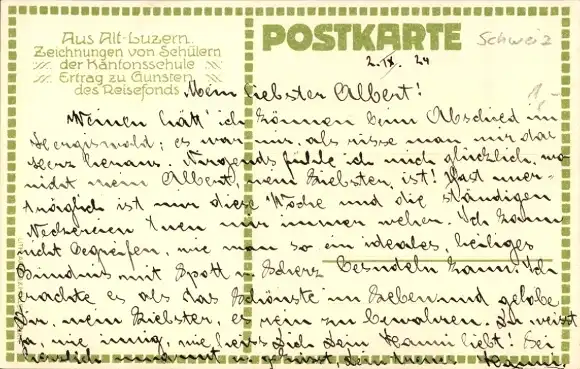 Aus Alt-Luzern.
Zeichnungen von Schülern
der Kantonsschule
Ertrag zu Gunsten
des Reisefonds
POSTKARTE
Schweiz
2. IX. 24
1,-
Mein liebster Albert!
Weinen hätt' ich können beim Abschied in
; es war mir, als risse man mir das
Herz heraus. Nirgends fühle ich mich glücklich, wo
nicht mein Albert, mein Liebster, ist! Fast uner-
träglich ist mir diese Woche und die ständigen
Neckereien tuen mir immer weher. Ich kann
nicht begreifen, wie man so ein ideales, heiliges
Bündnis mit Spott u. Scherz besudeln kann. Ich
erachte es als das Schönste im Leben und gelobe
Dir, mein Liebster, es rein zu bewahren. Du weisst
ja, wie innig, wie heiss Dich Dein Hanni liebt! Sei
herzlich und gegrüsst, Dein Hanni.